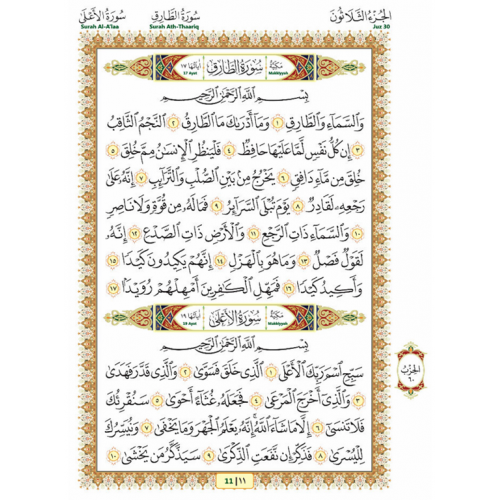 سُورَةُ الْأَعْلَىٰ سُورَةُ الطَّارِقِ الْجُزْءُ الثَّلَاثُونَ
Surah Al-A'laa Surah Ath-Thaariq Juz 30
اٰيَاتُهَا ١٧ سُورَةُ الطَّارِقِ مَكِّيَّة
17 Ayat Makkiyyah
بِسْمِ اللَّهِ الرَّحْمَٰنِ الرَّحِيمِ
وَالسَّمَاءِ وَالطَّارِقِ ١ وَمَا أَدْرَاكَ مَا الطَّارِقُ ٢ النَّجْمُ الثَّاقِبُ
٣ إِن كُلُّ نَفْسٍ لَّمَّا عَلَيْهَا حَافِظٌ ٤ فَلْيَنظُرِ الْإِنسَٰنُ مِمَّ خُلِقَ ٥
خُلِقَ مِن مَّاءٍ دَافِقٍ ٦ يَخْرُجُ مِن بَيْنِ الصُّلْبِ وَالتَّرَائِبِ ٧ إِنَّهُ عَلَىٰ
رَجْعِهِ لَقَادِرٌ ٨ يَوْمَ تُبْلَى السَّرَائِرُ ٩ فَمَا لَهُ مِن قُوَّةٍ وَلَا نَاصِرٍ
١٠ وَالسَّمَاءِ ذَاتِ الرَّجْعِ ١١ وَالْأَرْضِ ذَاتِ الصَّدْعِ ١٢ إِنَّهُ
لَقَوْلٌ فَصْلٌ ١٣ وَمَا هُوَ بِالْهَزْلِ ١٤ إِنَّهُمْ يَكِيدُونَ كَيْدًا ١٥
وَأَكِيدُ كَيْدًا ١٦ فَمَهِّلِ الْكَٰفِرِينَ أَمْهِلْهُمْ رُوَيْدًا ١٧
اٰيَاتُهَا ١٩ سُورَةُ الْأَعْلَىٰ مَكِّيَّة
19 Ayat Makkiyyah
بِسْمِ اللَّهِ الرَّحْمَٰنِ الرَّحِيمِ
سَبِّحِ اسْمَ رَبِّكَ الْأَعْلَى ١ الَّذِي خَلَقَ فَسَوَّىٰ ٢ وَالَّذِي قَدَّرَ فَهَدَىٰ
٣ وَالَّذِي أَخْرَجَ الْمَرْعَىٰ ٤ فَجَعَلَهُ غُثَاءً أَحْوَىٰ ٥ سَنُقْرِئُكَ
فَلَا تَنسَىٰ ٦ إِلَّا مَا شَاءَ اللَّهُ إِنَّهُ يَعْلَمُ الْجَهْرَ وَمَا يَخْفَىٰ ٧ وَنُيَسِّرُكَ
لِلْيُسْرَىٰ ٨ فَذَكِّرْ إِن نَّفَعَتِ الذِّكْرَىٰ ٩ سَيَذَّكَّرُ مَن يَخْشَىٰ ١٠
الْحِزْبُ
٦٠
11 | ١١